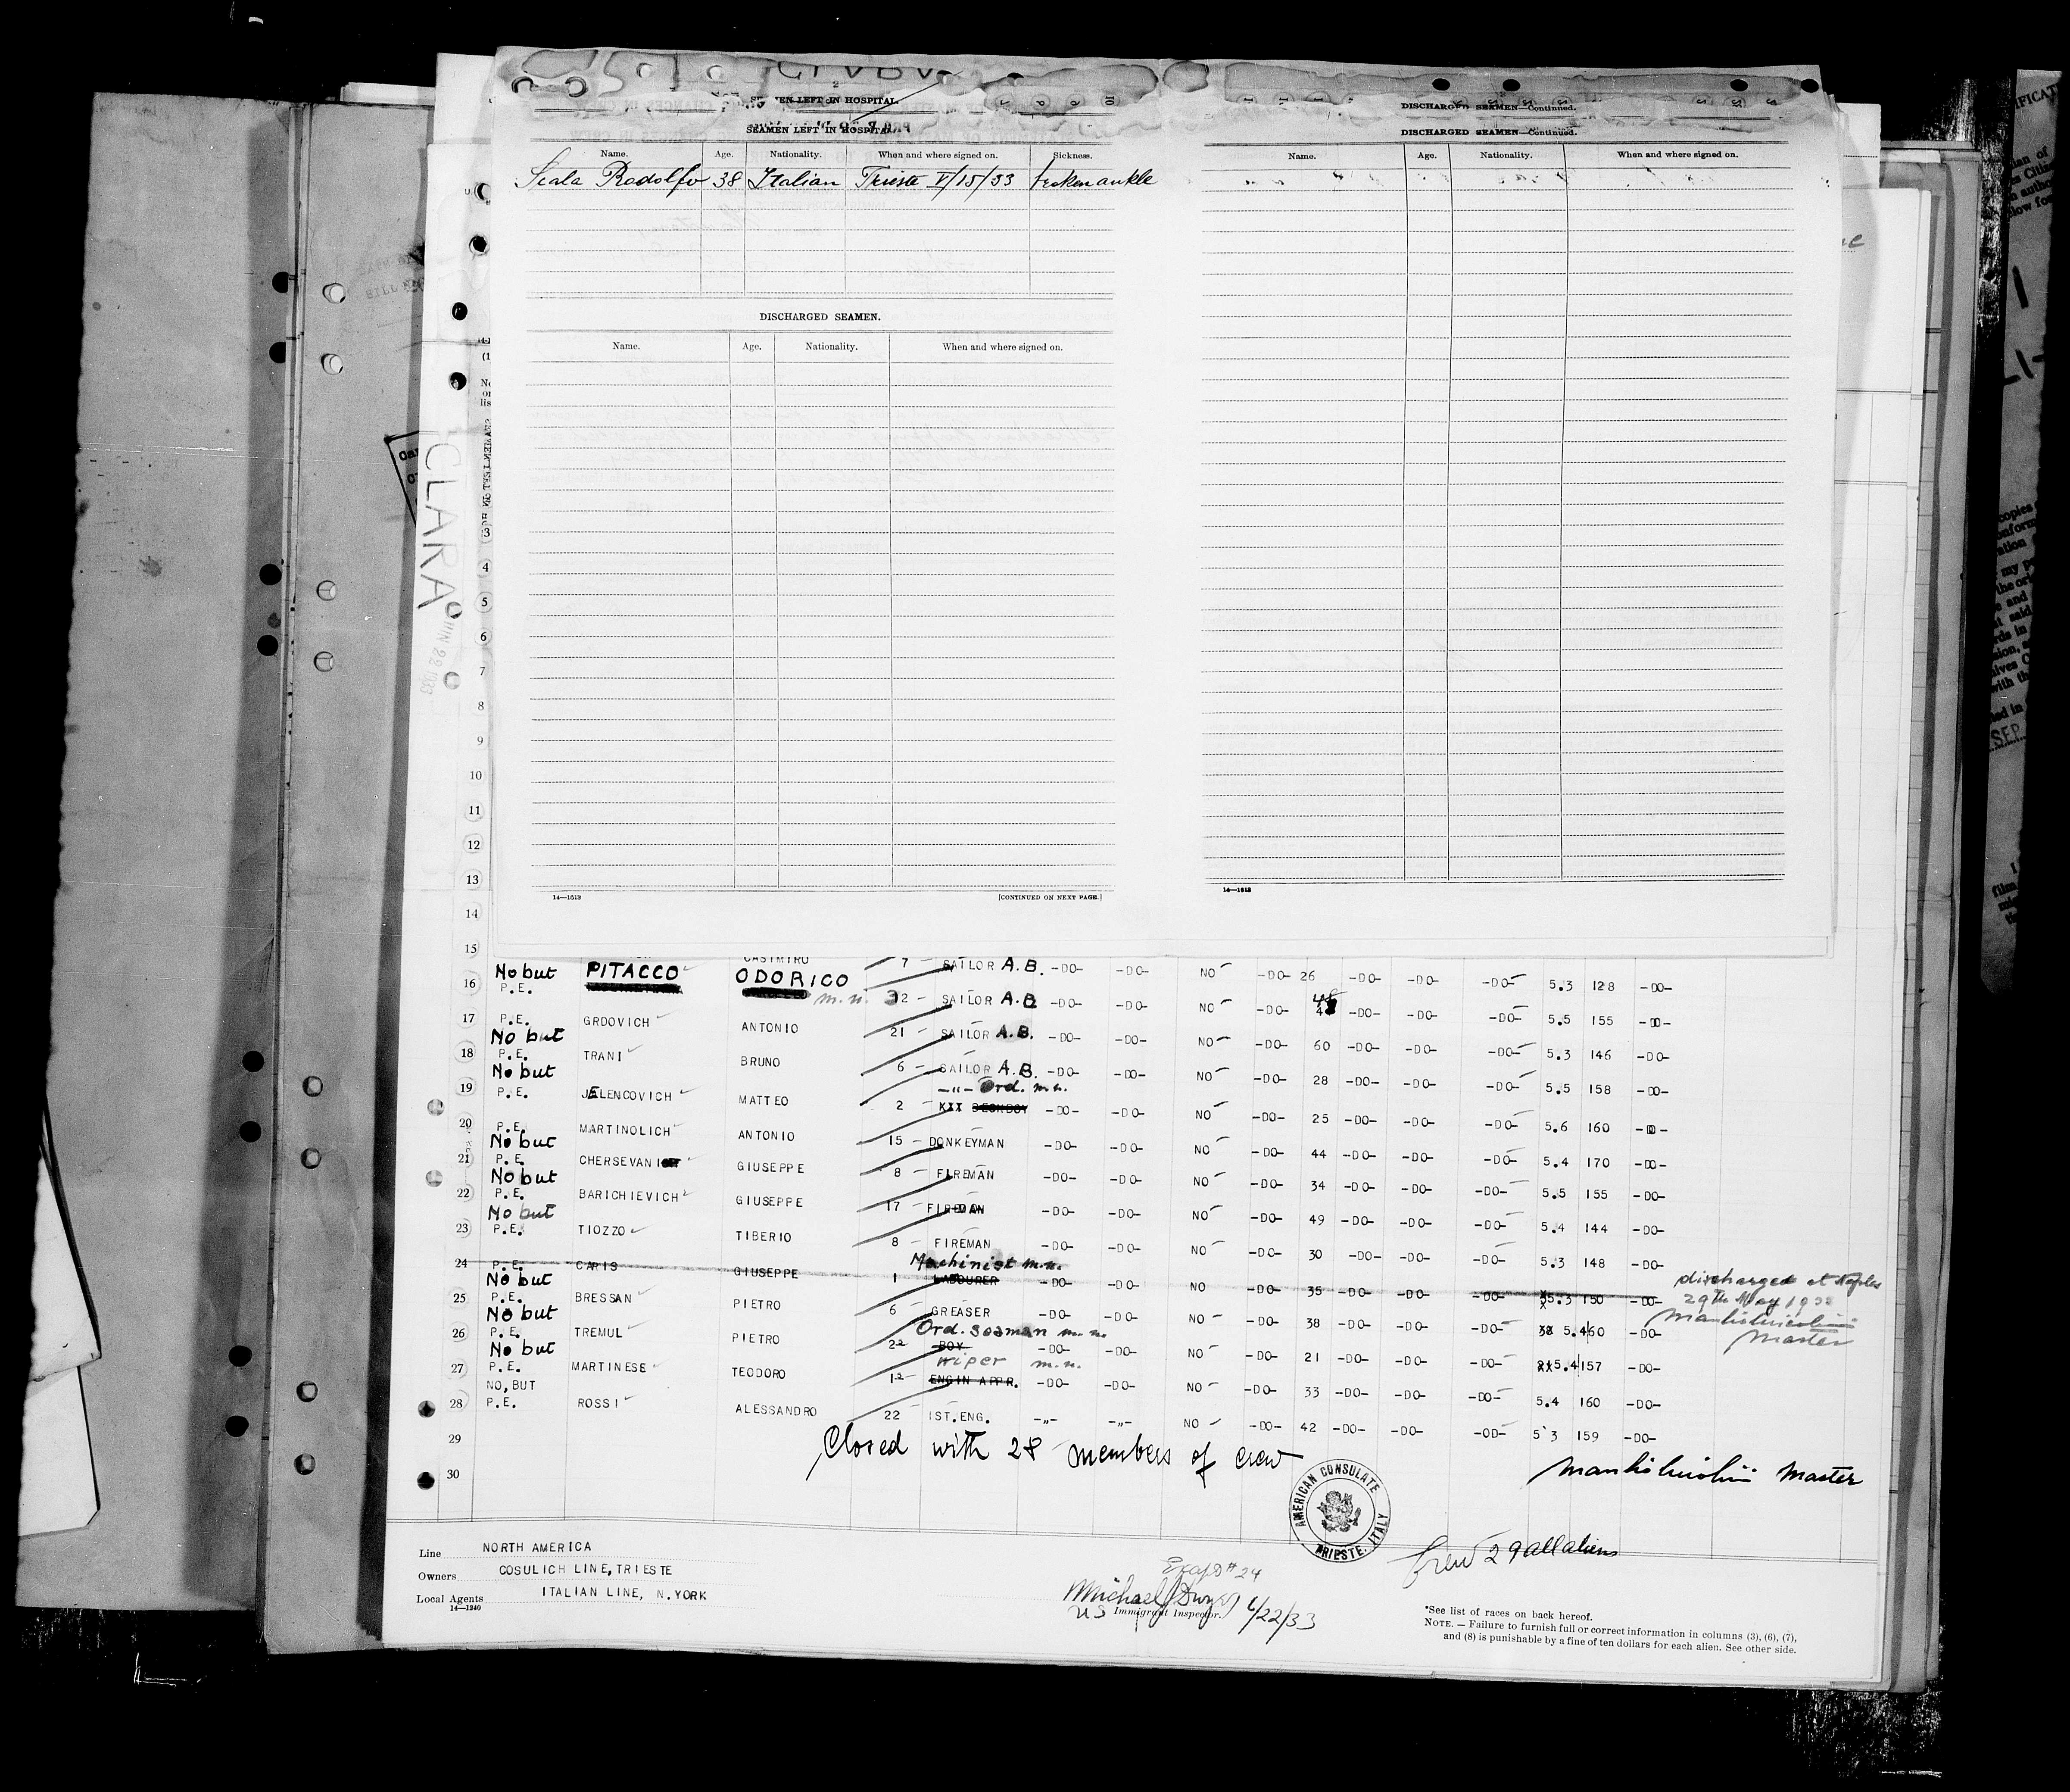 SEAMEN LEFT IN HOSPITAL.
DISCHARGED SEAMEN—Continued.
SEAMEN LEFT IN HOSPITAL.
DISCHARGED SEAMEN—Continued.
Name. Age. Nationality. When and where signed on. Sickness.
Scala Rodolfo 38 Italian Trieste V/15/33 broken ankle
Name. Age. Nationality. When and where signed on.
DISCHARGED SEAMEN.
Name. Age. Nationality. When and where signed on.
14—1613 [CONTINUED ON NEXT PAGE.]
14—1613
CLARA
JUN 22 1933
3
4
5
6
7
8
9
10
11
12
13
14
15
CASIMIRO 7 SAILOR A.B. -DO- -DO- NO -DO- 26 -DO- -DO- -DO- 5.3 128 -DO-
16 No but P.E. PITACCO ODORICO m.n. 32 SAILOR A.B. -DO- -DO- NO -DO- 48 -DO- -DO- -DO- 5.5 155 -DO-
17 P.E. GRDOVICH ANTONIO 21 SAILOR A.B. -DO- -DO- NO -DO- 60 -DO- -DO- -DO- 5.3 146 -DO-
18 No but P.E. TRANI BRUNO 6 SAILOR A.B. -DO- -DO- NO -DO- 28 -DO- -DO- -DO- 5.5 158 -DO-
19 No but P.E. JELENCOVICH MATTEO 2 -"- Ord. m.n. XXX DECKBOY -DO- -DO- NO -DO- 25 -DO- -DO- -DO- 5.6 160 -DO-
20 P.E. MARTINOLICH ANTONIO 15 DONKEYMAN -DO- -DO- NO -DO- 44 -DO- -DO- -DO- 5.4 170 -DO-
21 No but P.E. CHERSEVANI GIUSEPPE 8 FIREMAN -DO- -DO- NO -DO- 34 -DO- -DO- -DO- 5.5 155 -DO-
22 No but P.E. BARICHIEVICH GIUSEPPE 17 FIREMAN -DO- -DO- NO -DO- 49 -DO- -DO- -DO- 5.4 144 -DO-
23 No but P.E. TIOZZO TIBERIO 8 FIREMAN -DO- -DO- NO -DO- 30 -DO- -DO- -DO- 5.3 148 -DO-
24 P.E. CAPIS GIUSEPPE 1 Machinist m.n. LABOURER -DO- -DO- NO -DO- 35 -DO- -DO- -DO- 5.3 150 -DO- discharged at Naples
29th May 1933
Master
25 No but P.E. BRESSAN PIETRO 6 GREASER -DO- -DO- NO -DO- 38 -DO- -DO- -DO- 5.4 60 -DO-
26 No but P.E. TREMUL PIETRO 22 Ord. seaman m.n. BOY -DO- -DO- NO -DO- 21 -DO- -DO- -DO- 5.4 157 -DO-
27 No but P.E. MARTINESE TEODORO 12 wiper m.n. ENGIN APPR. -DO- -DO- NO -DO- 33 -DO- -DO- -DO- 5.4 160 -DO-
28 NO,BUT P.E. ROSSI ALESSANDRO 22 IST.ENG. -"- -"- NO -DO- 42 -DO- -DO- -OD- 5 3 159 -DO-
29
30
Closed with 28 members of crew
Master
AMERICAN CONSULATE
TRIESTE, ITALY
Crew 29 all aliens
Line NORTH AMERICA
Owners COSULICH LINE,TRIESTE
Local Agents ITALIAN LINE, N.YORK
14—1240
Except #24
Michael J Dwyer 6/22/33
US Immigrant Inspector.
*See list of races on back hereof.
NOTE. — Failure to furnish full or correct information in columns (3), (6), (7),
and (8) is punishable by a fine of ten dollars for each alien. See other side.